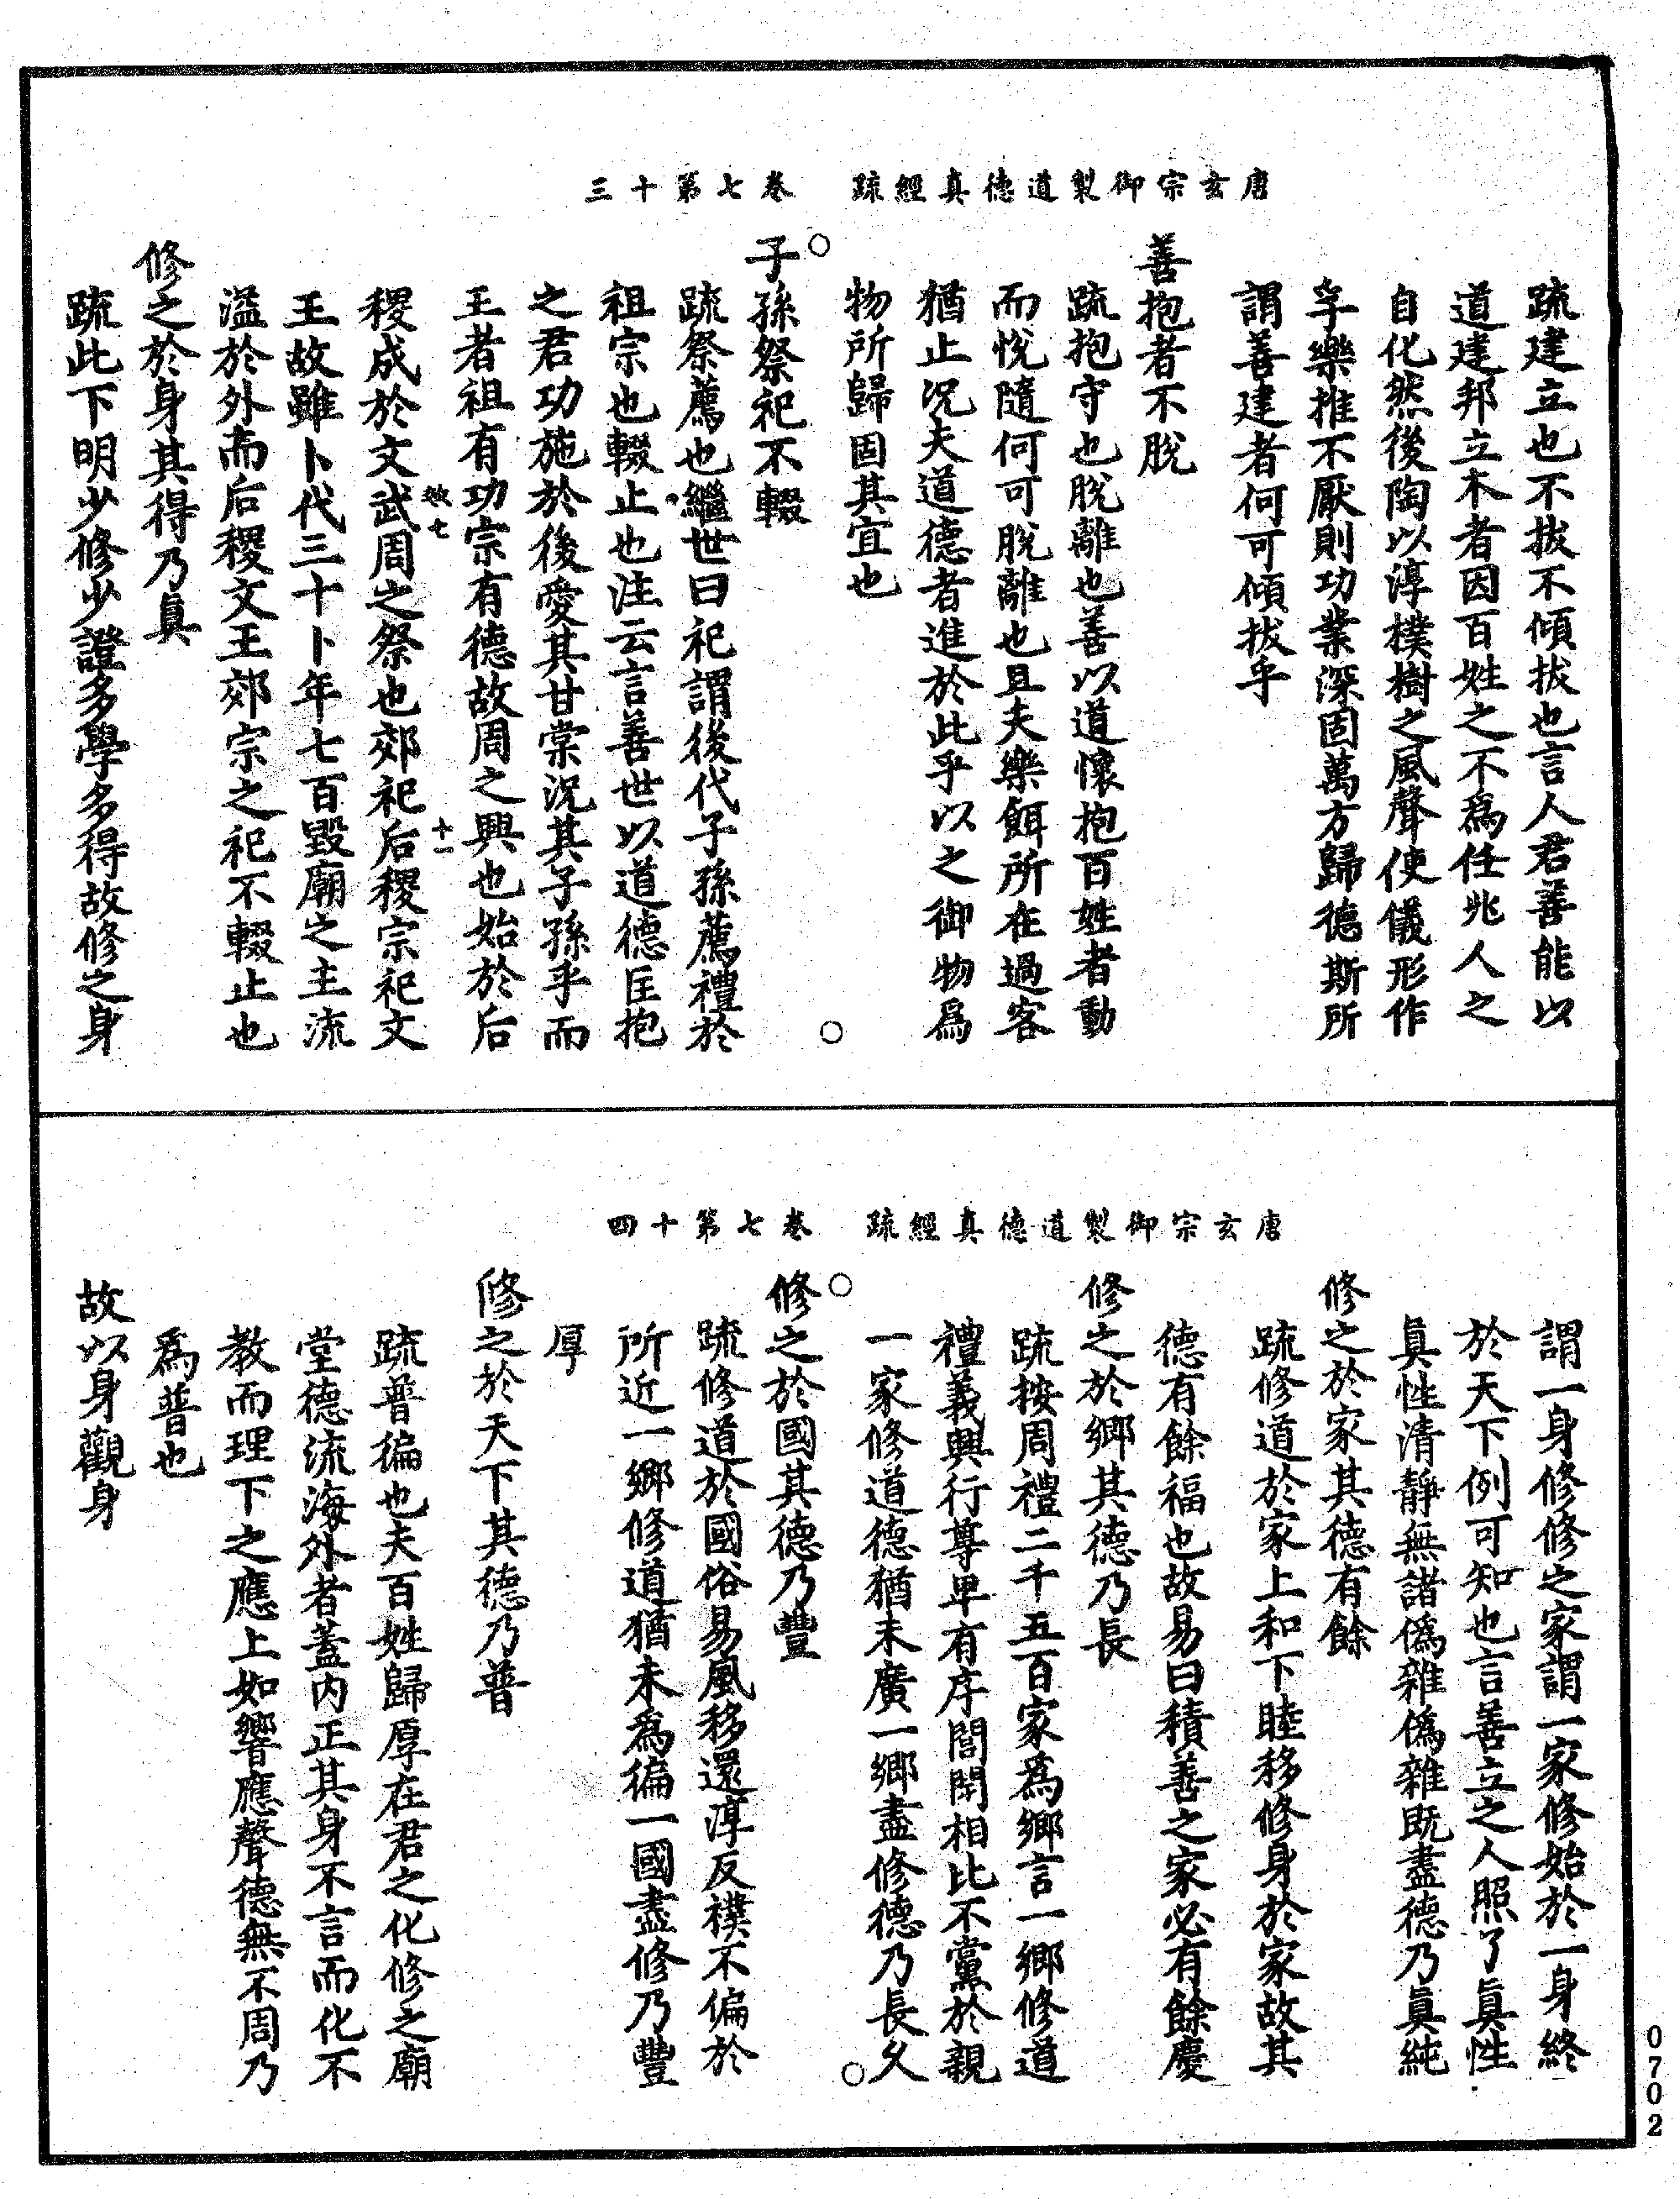 唐玄宗御製道德真經疏　卷七第十三
疏建立也不拔不傾拔也言人君善能以
道建邦立木者因百姓之不為任兆人之
自化然後陶以淳樸樹之風聲使儀形作
孚樂推不厭則功業深固萬方歸德斯所
謂善建者何可傾拔乎
善抱者不脫
疏抱守也脫離也善以道懷抱百姓者動
而悅隨何可脫離也且夫樂餌所在過客
猶止況夫道德者進於此乎以之御物為
物所歸固其宜也
子孫祭祀不輟
疏祭薦也繼世曰祀謂後代子孫薦禮於
祖宗也輟止也注云言善世以道德匡抱
之君功施於後愛其甘棠況其子孫乎而
王者祖有功宗有德故周之興也始於后
稷成於文武周之祭也郊祀后稷宗祀文
王故雖卜代三十卜年七百毀廟之主流
溢於外而后稷文王郊宗之祀不輟止也
修之於身其得乃真
疏此下明少修少證多學多得故修之身
唐玄宗御製道德真經疏　卷七第十四
謂一身修修之家謂一家修始於一身終
於天下例可知也言善立之人照了真性
真性清靜無諸偽雜偽雜既盡德乃真純
修之於家其德有餘
疏修道於家上和下睦移修身於家故其
德有餘福也故易曰積善之家必有餘慶
修之於鄉其德乃長
疏按周禮二千五百家為鄉言一鄉修道
禮義興行尊卑有序閭閈相比不黨於親
一家修道德猶未廣一鄉盡修德乃長久
修之於國其德乃豐
疏修道於國俗易風移還淳反樸不偏於
所近一鄉修道猶未為徧一國盡修乃豐
厚
修之於天下其德乃普
疏普徧也夫百姓歸厚在君之化修之廟
堂德流海外者蓋內正其身不言而化不
教而理下之應上如響應聲德無不周乃
為普也
故以身觀身
0702